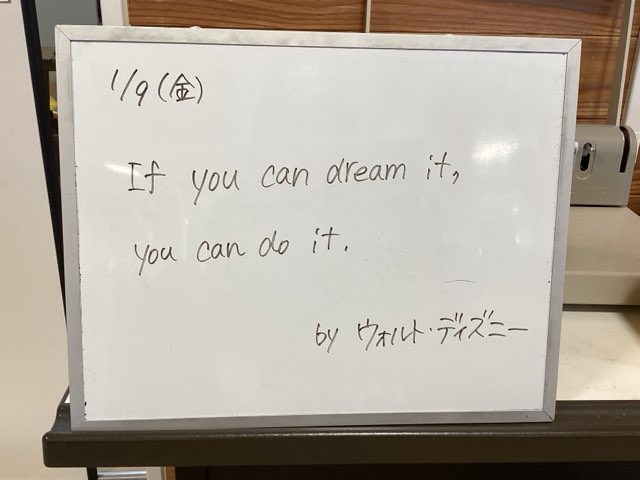 1/9(金)
If you can dream it,
you can do it.
by ウォルト・ディズニー